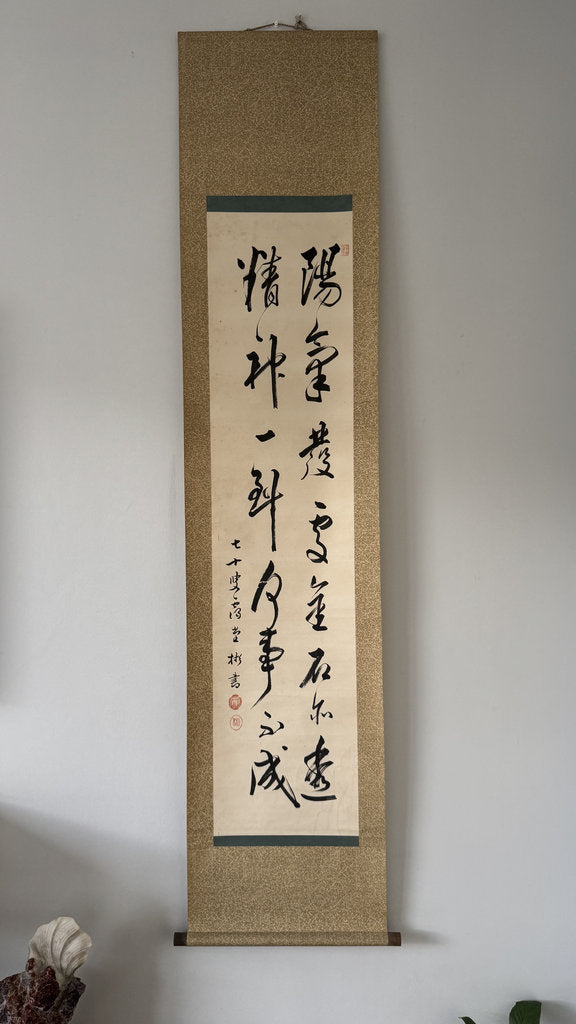 陽氣發處金石亦透
精神一到何事不成
七十堂彬書